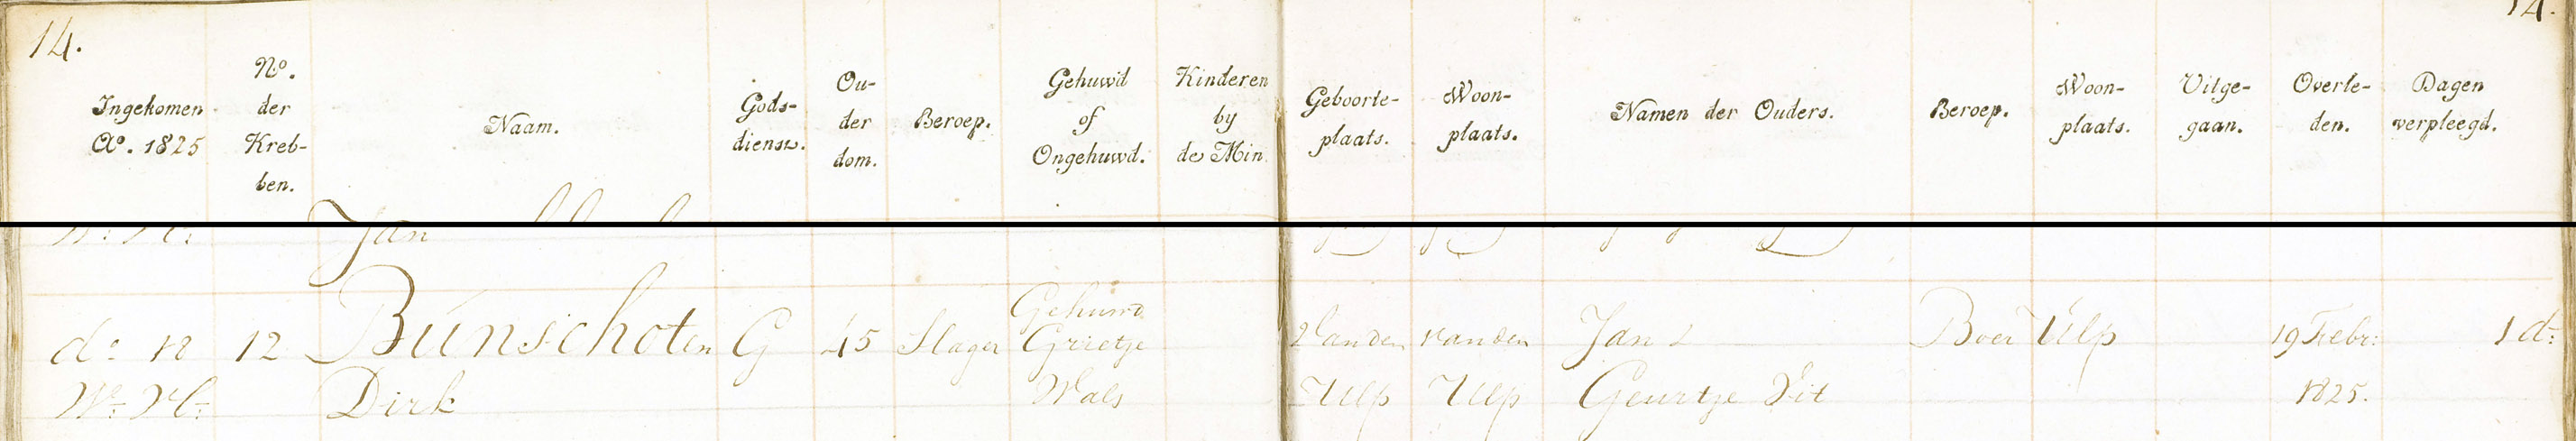 14.
14.
Ingekomen
Ao. 1825
No.
der
Kreb-
ben.
Naam.
Gods-
dienst.
Ou-
der
dom.
Beroep.
Gehuwd
of
Ongehuwd.
Kinderen
by
de Min
Geboorte-
plaats.
Woon-
plaats.
Namen der Ouders.
Beroep.
Woon-
plaats.
Uitge-
gaan.
Overle-
den.
Dagen
verpleegd.
Jan
do 18
12
Bunschoten
Dirk
G
45
Slager
Gehuwd
Grietje
Wals
Vanden
Ulp
vanden
Ulp
Jan
Geurtje Vit
Boer
Ulp
19 Febr:
1825.
1 d: